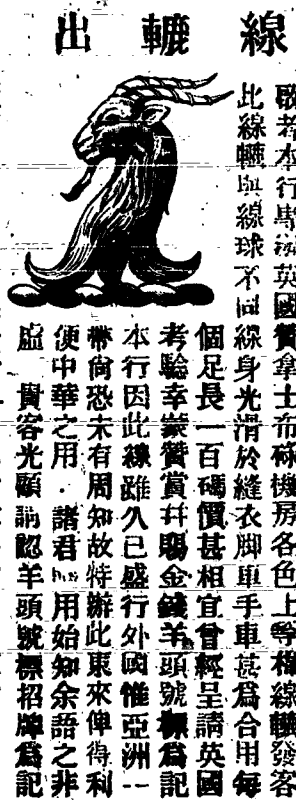 線轆出
啟者本行專沽英國贊拿士布碌機房各色上等棉線轆發客
此線轆與線球不同線身光滑於縫衣脚車手車甚爲合用每
個足長一百碼價甚相宜曾經呈請英國
考驗幸蒙贊賞幷賜金錢羊頭號標爲記
本行因此線雖久已盛行外國惟亞洲一
帶尙恐未有周知故特辦此東來俾得利
便中華之用諸君用始知余語之非
虛 貴客光顧請認羊頭號標招牌爲記